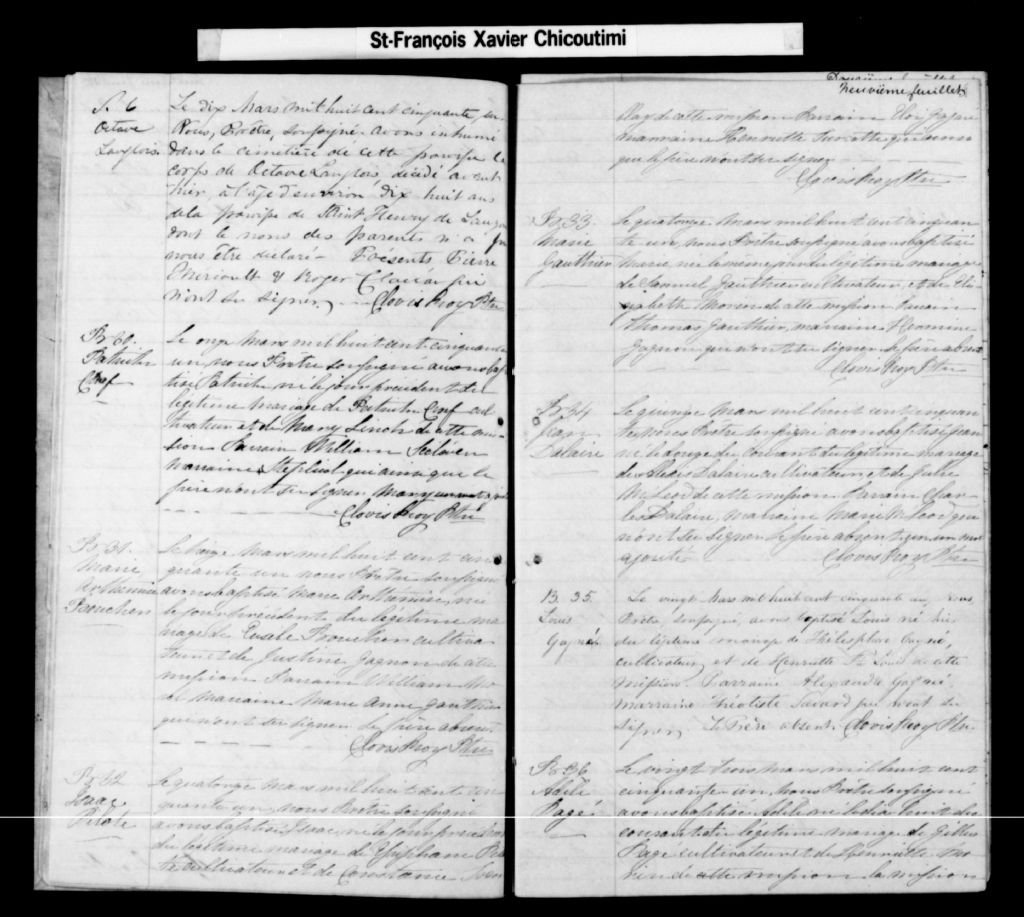 St-François Xavier Chicoutimi
S. 6
Octave
Langlois
Le dix Mars mil huit cent cinquante un
Nous, Prêtre, soussigné avons inhumé
dans le cimetière de cette paroisse le
corps de Octave Langlois décédé avant
hier, à l'age d'environ dix huit ans
de la paroisse de Saint Henry de Lauzon
dont le noms des parents n'a pu
nous être déclaré. Présents Pierre
Theriault & Roger qui
n'ont su signer. Clovis Roy Ptre
B. 30.
Patrick
Le onze Mars mil huit cent cinquante
un nous Prêtre soussigné avons bap
tisé Patrick né le jour précédent du
légitime mariage de Patrick cul
tivateur et de Mary Linch de cette mis
sion Parrain William
marraine qui ainsi que le
père n'ont su signer
Clovis Roy Ptre
B. 31.
Marie
Arthémise
Bouchard
Le treize Mars mil huit cent cin
quante un nous Prêtre soussigné
avons baptisé Marie Arthémise, née
le jour précédent du légitime ma
riage de Eusèbe cultiva
teur et de Justine Gagnon de cette
mission Parrain William
et marraine Marie Anne Gauthier
qui n'ont su signer le père absent.
Clovis Roy Ptre
B. 32
Isaac
Pilote
Le quatorze Mars mil huit cent cin
quante un nous Prêtre soussigné
avons baptisé Isaac, né le jour précédent
du légitime mariage de Epiphane
cultivateur et de Constance
neuvième feuillet
de cette mission Parrain Eloi Gagné
marraine Henriette
que le père n'ont su signer
Clovis Roy Ptre
B. 33.
Marie
Gauthier
Le quatorze Mars mil huit cent cinquan
te un, nous Prêtre soussigné avons baptisé
Marie, née le même jour du légitime mariage
de Samuel Gauthier cultivateur, et de Eli
zabeth Morin de cette mission Parrain
Thomas Gauthier, marraine Hermine
Gagnon qui n'ont su signer le père absent
Clovis Roy Ptre
B. 34
Jean
Dalaire
Le quinze Mars mil huit cent cinquan
te un nous Prêtre soussigné avons baptisé Jean
né le douze du courant du légitime mariage
de Dalaire cultivateur et de Julie
McLeod de cette mission Parrain Char
les Dalaire, marraine Marie McLeod qui
n'ont su signer le père absent un mot
ajouté Clovis Roy Ptre
B. 35.
Louis
Gagné
Le vingt Mars mil huit cent cinquante un, Nous
Prêtre, soussigné, avons baptisé Louis né hier
du légitime mariage de Thélesphore Gagné,
cultivateur, et de Henriette St Louis de cette
mission. Parrain Alexandre Gagné
marraine Théotiste Savard qui n'ont su
signer. Le Père absent. Clovis Roy Ptre
B. 36.
Adèle
Pagé
Le vingt trois Mars mil huit cent
cinquante un, nous Prêtre soussigné
avons baptisé Adèle née le dix huit du
courant du légitime mariage de
Pagé cultivateur et de Henriette Mo
rin de cette mission la mission